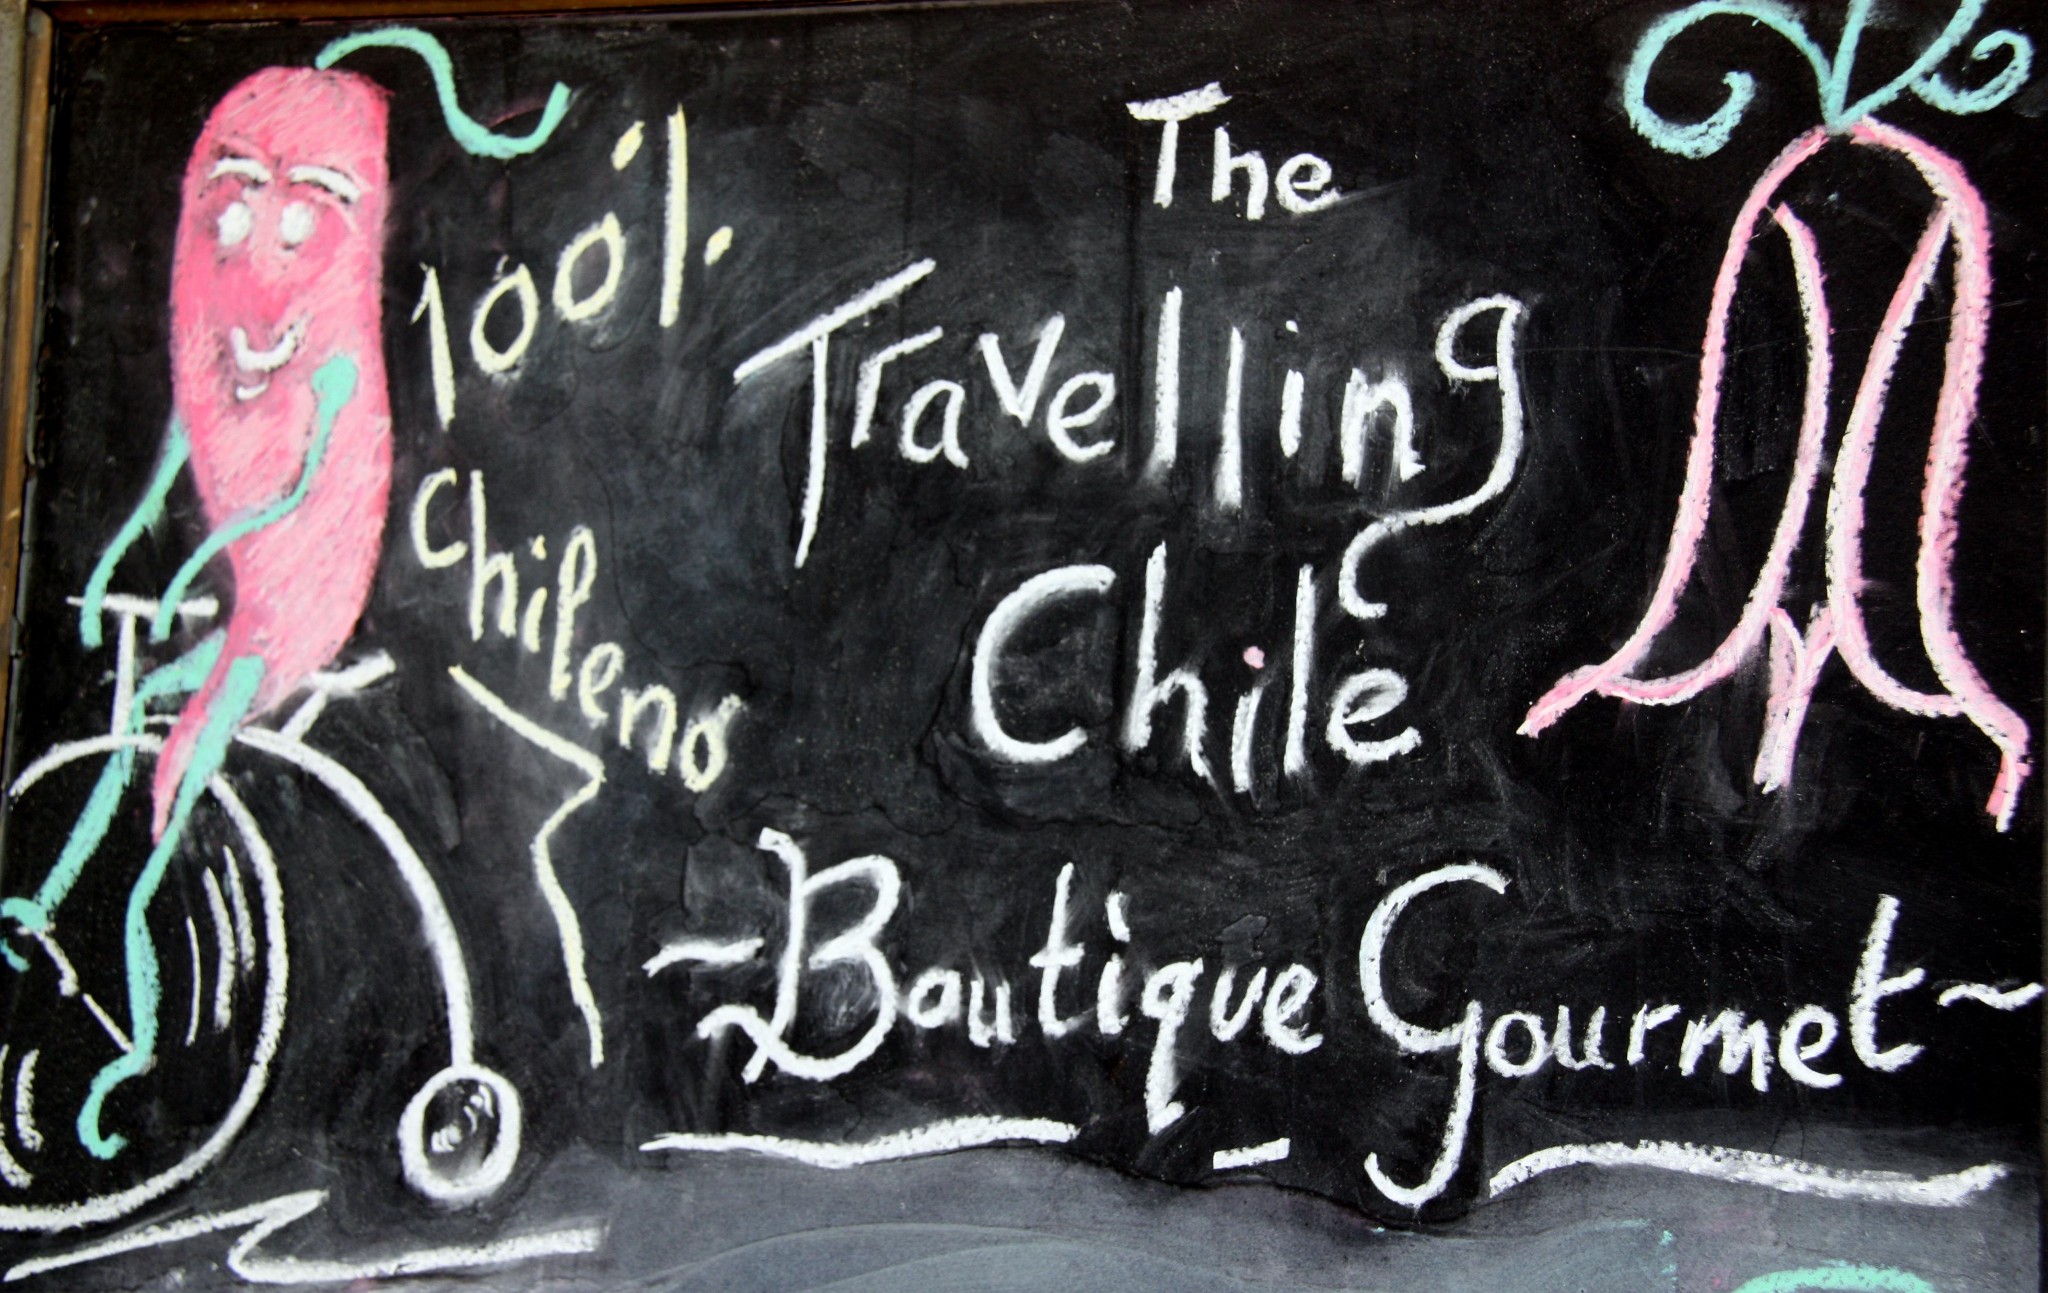 100%
Chileno
The
Travelling
Chile
~Boutique Gourmet~